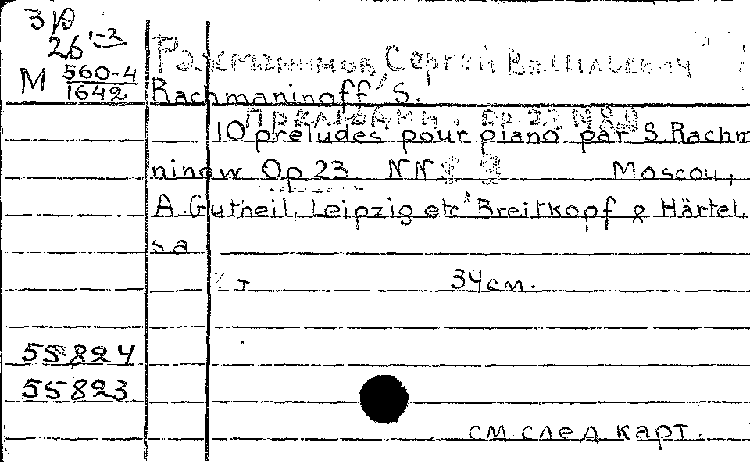 3р
26 1-2
М 560-4
1642
Рахманинов, Сергей Васильевич
Rachmaninoff, S.
Прелюдии. Op. 23
10 préludes pour piano par S. Rachm
ninow Op 23 NN Moscou,
A. Gutheil, Leipzig etc Breitkopf & Härtel,
s a
34см.
55824
55823
см. след карт.